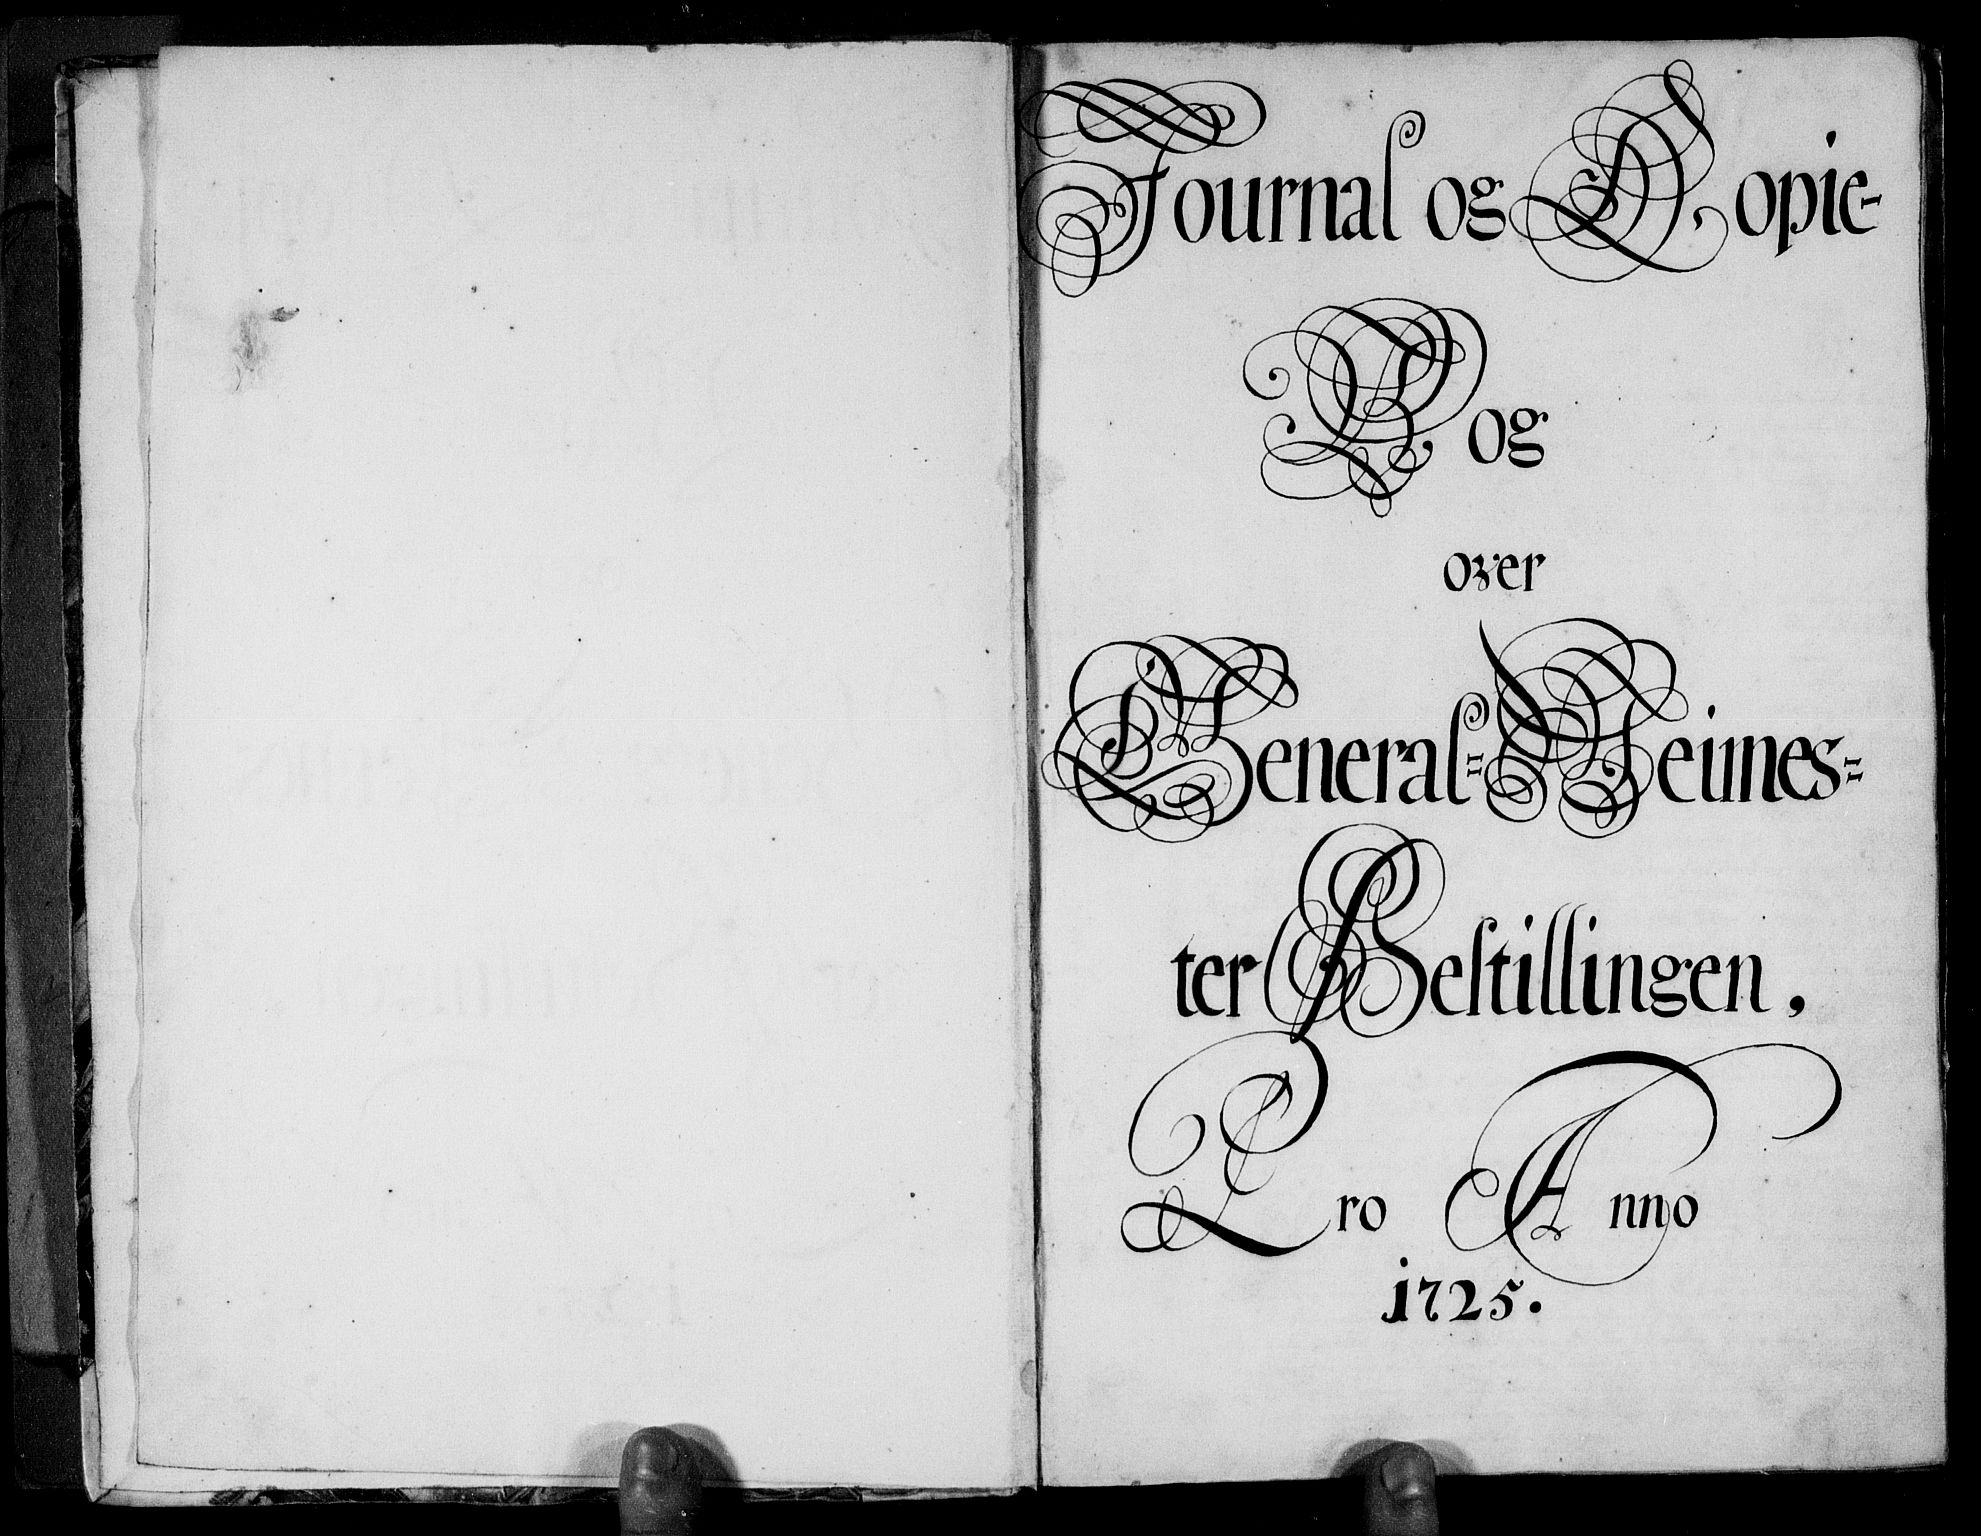 Journal og Copie-
Bog
over
General= Veimes=
ter Bestillingen,
Pro Anno
1725.